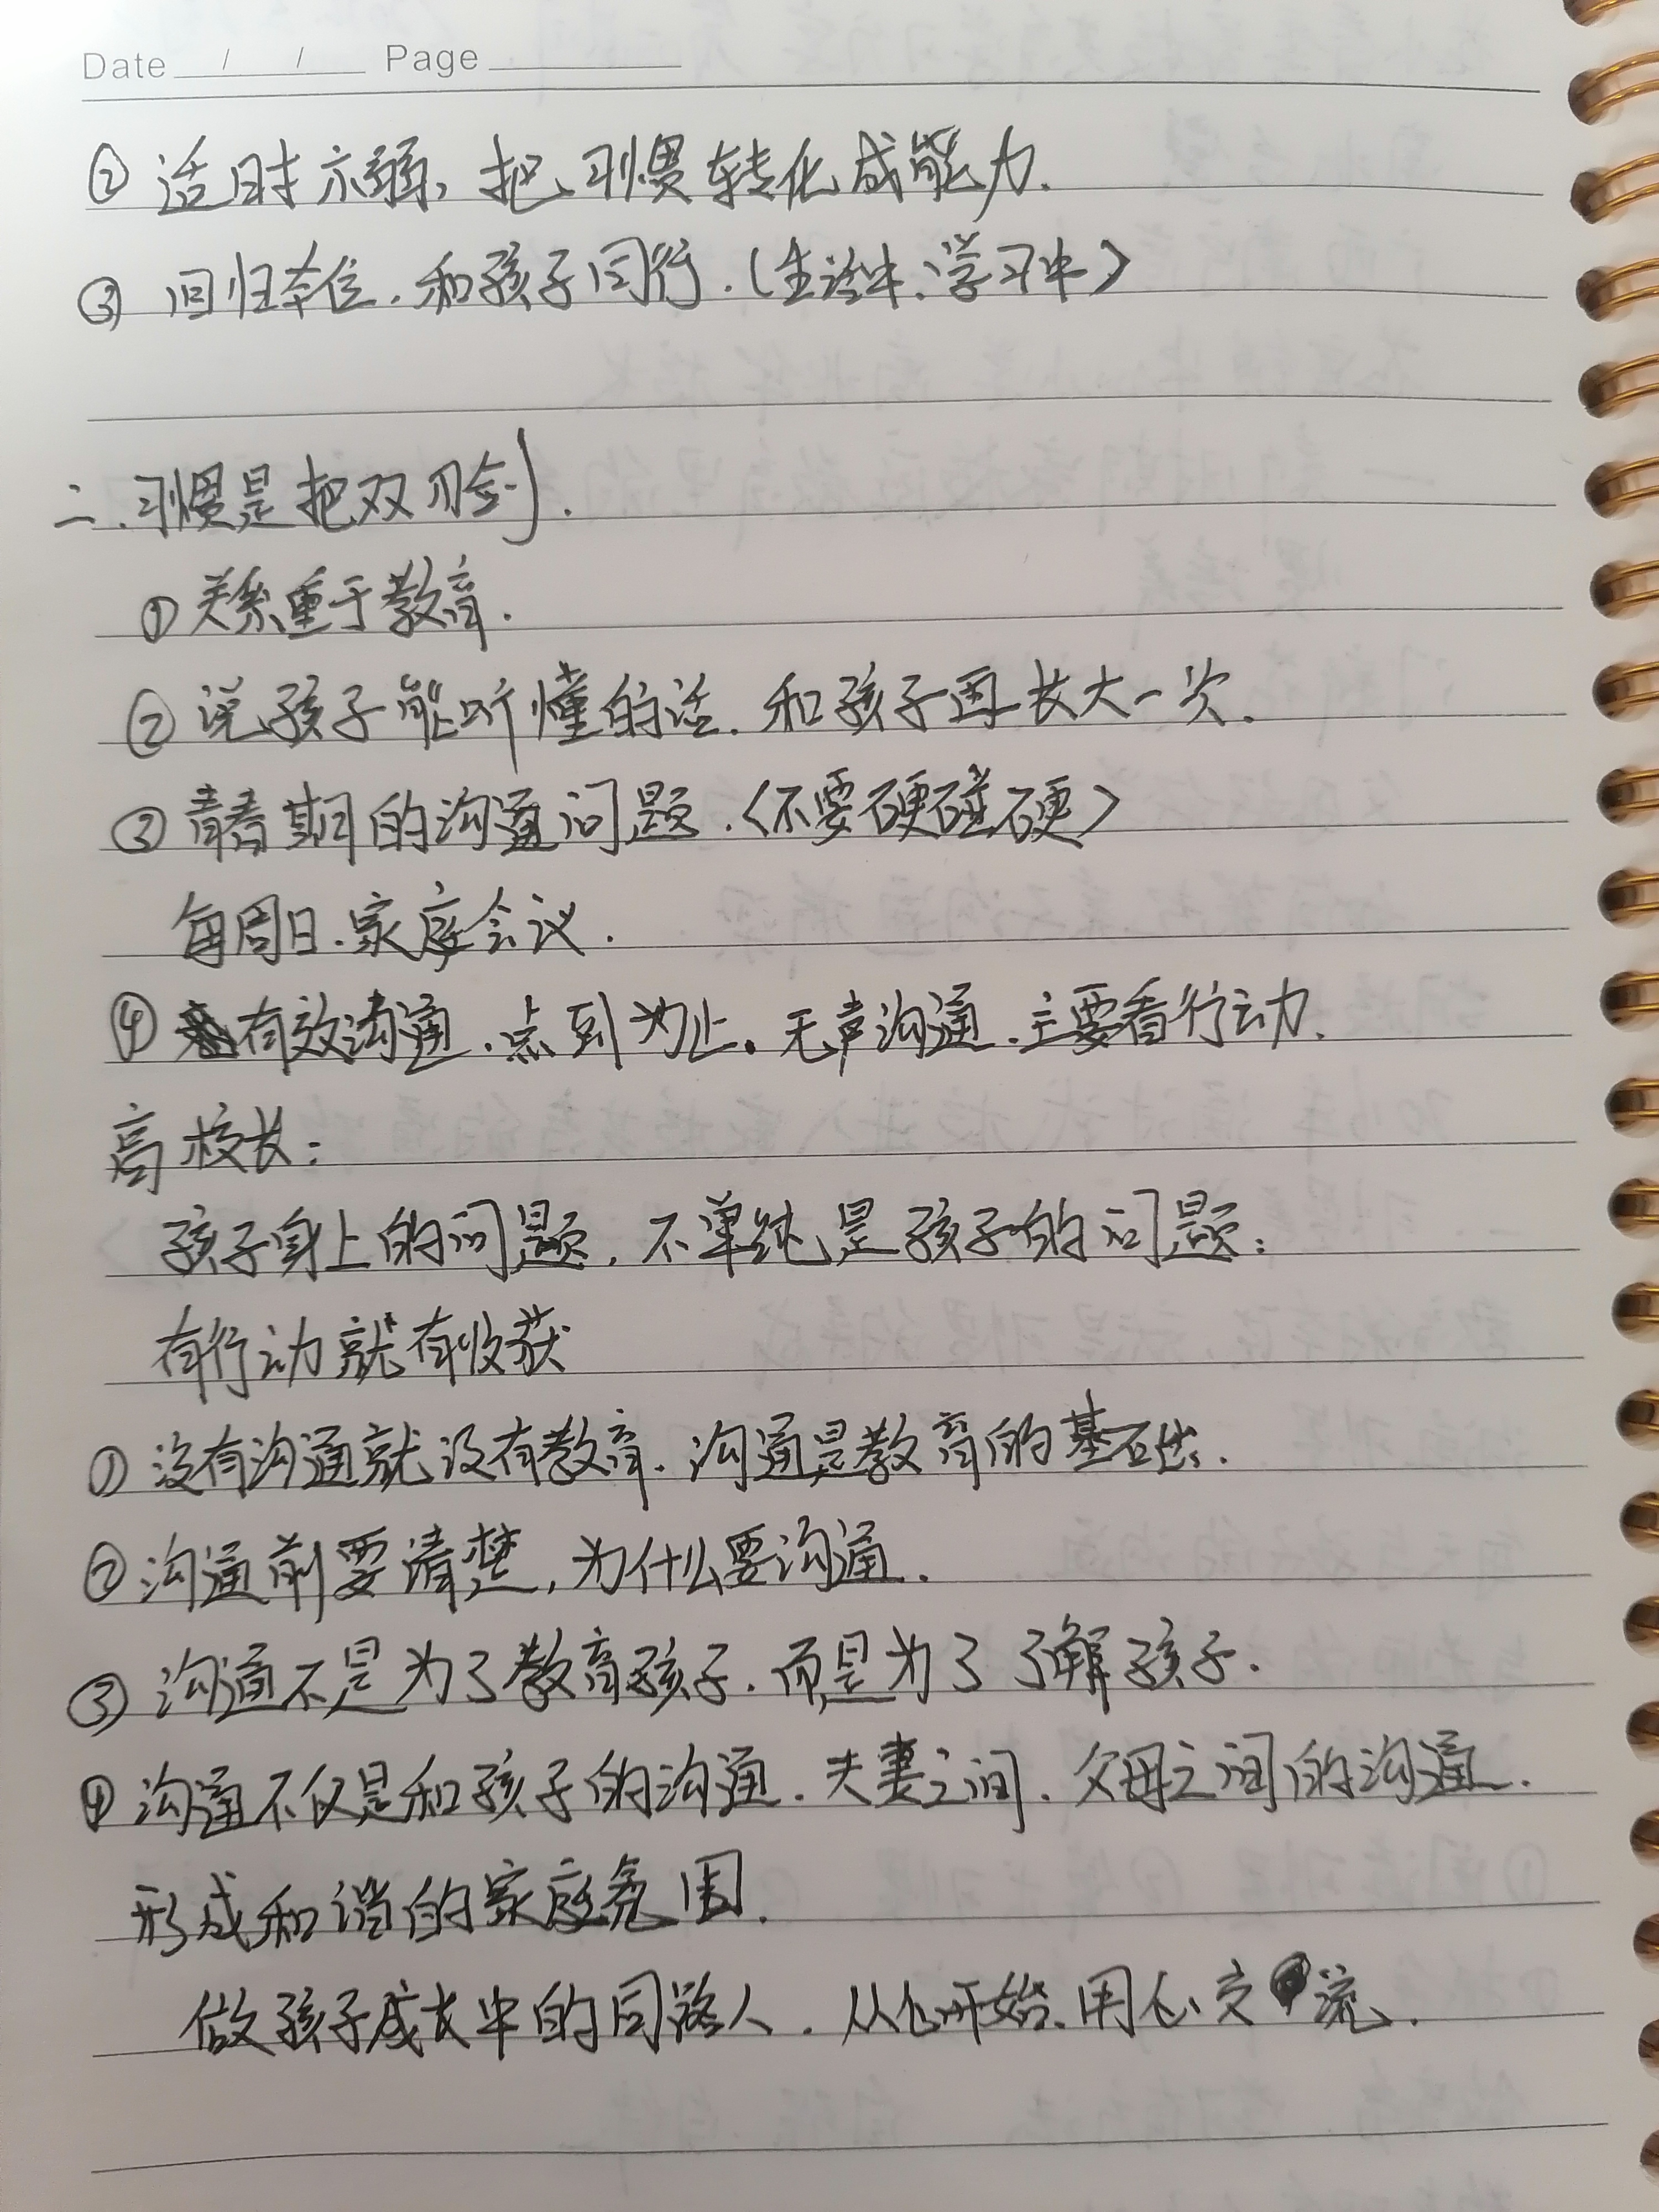 Date / / Page
② 适时示弱，把习惯转化成能力.
③ 回归本位.和孩子同行.(生活中、学习中)
二.习惯是把双刃剑.
①关系重于教育.
②说孩子能听懂的话.和孩子再长大一次.
③青春期的沟通问题.<不要硬碰硬>
每周日.家庭会议.
④有效沟通.点到为止。无声沟通.主要看行动.
高校长：
孩子身上的问题，不单纯是孩子的问题；
有行动就有收获
①没有沟通就没有教育.沟通是教育的基础.
②沟通前要清楚，为什么要沟通.
③沟通不是为了教育孩子.而是为了了解孩子.
④沟通不仅是和孩子的沟通.夫妻之间.父母之间的沟通.
形成和谐的家庭氛围.
做孩子成长中的同路人.从心开始.用心交流.